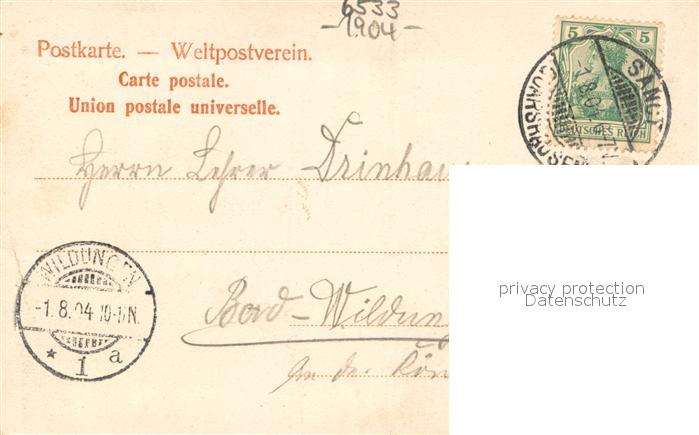 6533
-1904-
Postkarte. — Weltpostverein.
Carte postale.
Union postale universelle.
5 5
DEUTSCHES REICH
SANCT
GOARSHAUSEN
Herrn Lehrer Drinhau
WILDUNGEN
-1.8.04 10-11N.
* 1 a
Bad-Wildung
An der Kön
privacy protection
Datenschutz